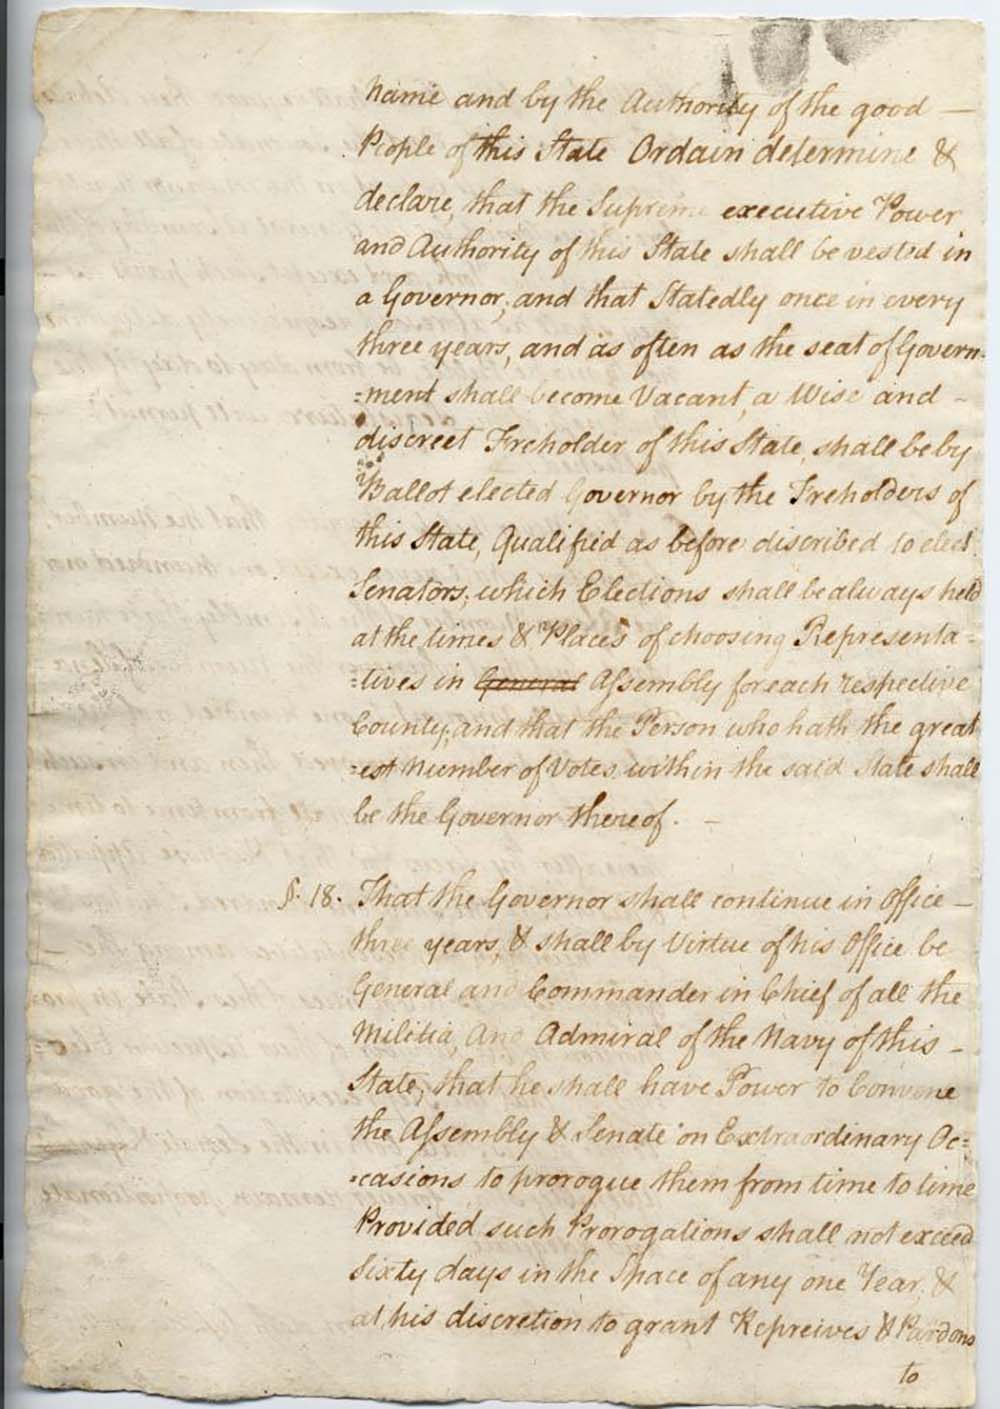 Name and by the Authority of the good —
People of this State Ordain determine &
declare, that the Supreme executive Power
and Authority of this State shall be vested in
a Governor, and that Statedly once in every
three years, and as often as the seat of Govern-
=ment shall become Vacant, a Wise and -
discreet Freholder of this State, shall be by
Ballot elected Governor by the Freholders of
this State, Qualified as before discribed to elect
Senators; which Elections shall be always held
at the times & Places of choosing Representa=
=tives in General Assembly for each respective
County; and that the Person who hath the great
=est Number of Votes within the said State shall
be the Governor thereof. —
§. 18. That the Governor shall continue in Office —
three years, & shall by Virtue of his Office be
General and Commander in Chief of all the
Militia, And Admiral of the Navy of this —
State; that he shall have Power to Convene
the Assembly & Senate on Extraordinary Oc=
=casions to prorogue them from time to time
Provided such Prorogations shall not exceed
Sixty days in the Space of any one Year, &
at his discretion to grant Repreives & Pardons
to